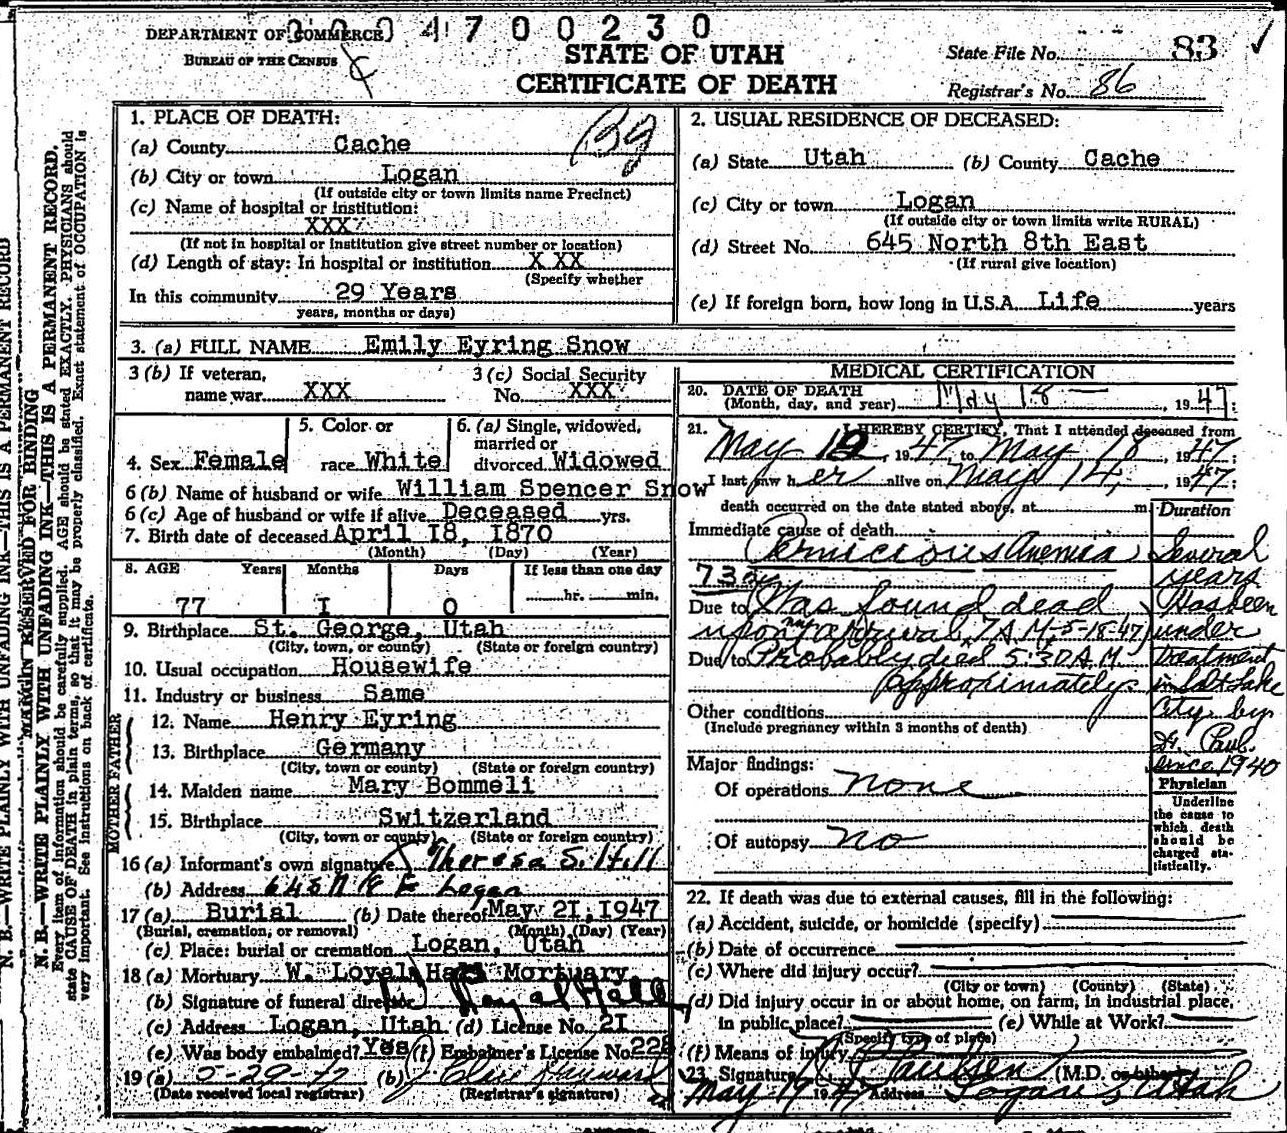 0004700230
DEPARTMENT OF COMMERCE
BUREAU OF THE CENSUS
STATE OF UTAH
CERTIFICATE OF DEATH
State File No. 83
Registrar's No. 86
1. PLACE OF DEATH:
(a) County Cache
(b) City or town Logan
(If outside city or town limits name Precinct)
(c) Name of hospital or institution:
XXX
(If not in hospital or institution give street number or location)
(d) Length of stay: In hospital or institution XXX
(Specify whether
In this community 29 Years
years, months or days)
2. USUAL RESIDENCE OF DECEASED:
(a) State Utah (b) County Cache
(c) City or town Logan
(If outside city or town limits write RURAL)
(d) Street No. 645 North 8th East
(If rural give location)
(e) If foreign born, how long in U.S.A. Life years
3. (a) FULL NAME Emily Eyring Snow
3 (b) If veteran, name war XXX
3 (c) Social Security No. XXX
4. Sex Female
5. Color or race White
6. (a) Single, widowed, married or divorced Widowed
6 (b) Name of husband or wife William Spencer Snow
6 (c) Age of husband or wife if alive Deceased yrs.
7. Birth date of deceased April 18, 1870
(Month) (Day) (Year)
8. AGE Years Months Days If less than one day
77 I 0 hr. min.
9. Birthplace St. George, Utah
(City, town, or county) (State or foreign country)
10. Usual occupation Housewife
11. Industry or business Same
FATHER
12. Name Henry Eyring
13. Birthplace Germany
(City, town or county) (State or foreign country)
MOTHER
14. Maiden name Mary Bommeli
15. Birthplace Switzerland
(City, town or county) (State or foreign country)
16 (a) Informant's own signature Theresa S. Hill
(b) Address 645 N 8 E Logan
17 (a) Burial (b) Date thereof May 21, 1947
(Burial, cremation, or removal) (Month) (Day) (Year)
(c) Place: burial or cremation Logan, Utah
18 (a) Mortuary W. Loyal Hall Mortuary
(b) Signature of funeral director W. Loyal Hall
(c) Address Logan, Utah (d) License No. 21
(e) Was body embalmed? Yes (f) Embalmer's License No. 228
19 (a) 5-20-47 (b)
(Date received local registrar) (Registrar's signature)
MEDICAL CERTIFICATION
20. DATE OF DEATH
(Month, day, and year) May 18 , 1947;
21. I HEREBY CERTIFY, That I attended deceased from
May 1947 to May 18, 1947;
I last saw her alive on May 14, 1947;
death occurred on the date stated above, at m.
Duration
Immediate cause of death
Pernicious Anemia
Several years
73
Due to Was found dead
upon my arrival 7 A.M. 5-18-47
Due to Probably died 5:30 A.M.
approximately
Has been under treatment in Salt Lake City by Dr. Paul since 1940
Other conditions
(Include pregnancy within 3 months of death)
Major findings:
Of operations none
Of autopsy no
Physician
Underline the cause to which death should be charged statistically.
22. If death was due to external causes, fill in the following:
(a) Accident, suicide, or homicide (specify)
(b) Date of occurrence
(c) Where did injury occur?
(City or town) (County) (State)
(d) Did injury occur in or about home, on farm, in industrial place,
in public place? (e) While at Work?
(Specify type of place)
(f) Means of injury
23. Signature (M.D. or other)
May 19 1947 Address Logan, Utah
N. B.—WRITE PLAINLY WITH UNFADING INK—THIS IS A PERMANENT RECORD
MARGIN RESERVED FOR BINDING
N. B.—WRITE PLAINLY WITH UNFADING INK—THIS IS A PERMANENT RECORD.
Every item of information should be carefully supplied. AGE should be stated EXACTLY. PHYSICIANS should
state CAUSE OF DEATH in plain terms, so that it may be properly classified. Exact statement of OCCUPATION is
very important. See instructions on back of certificate.